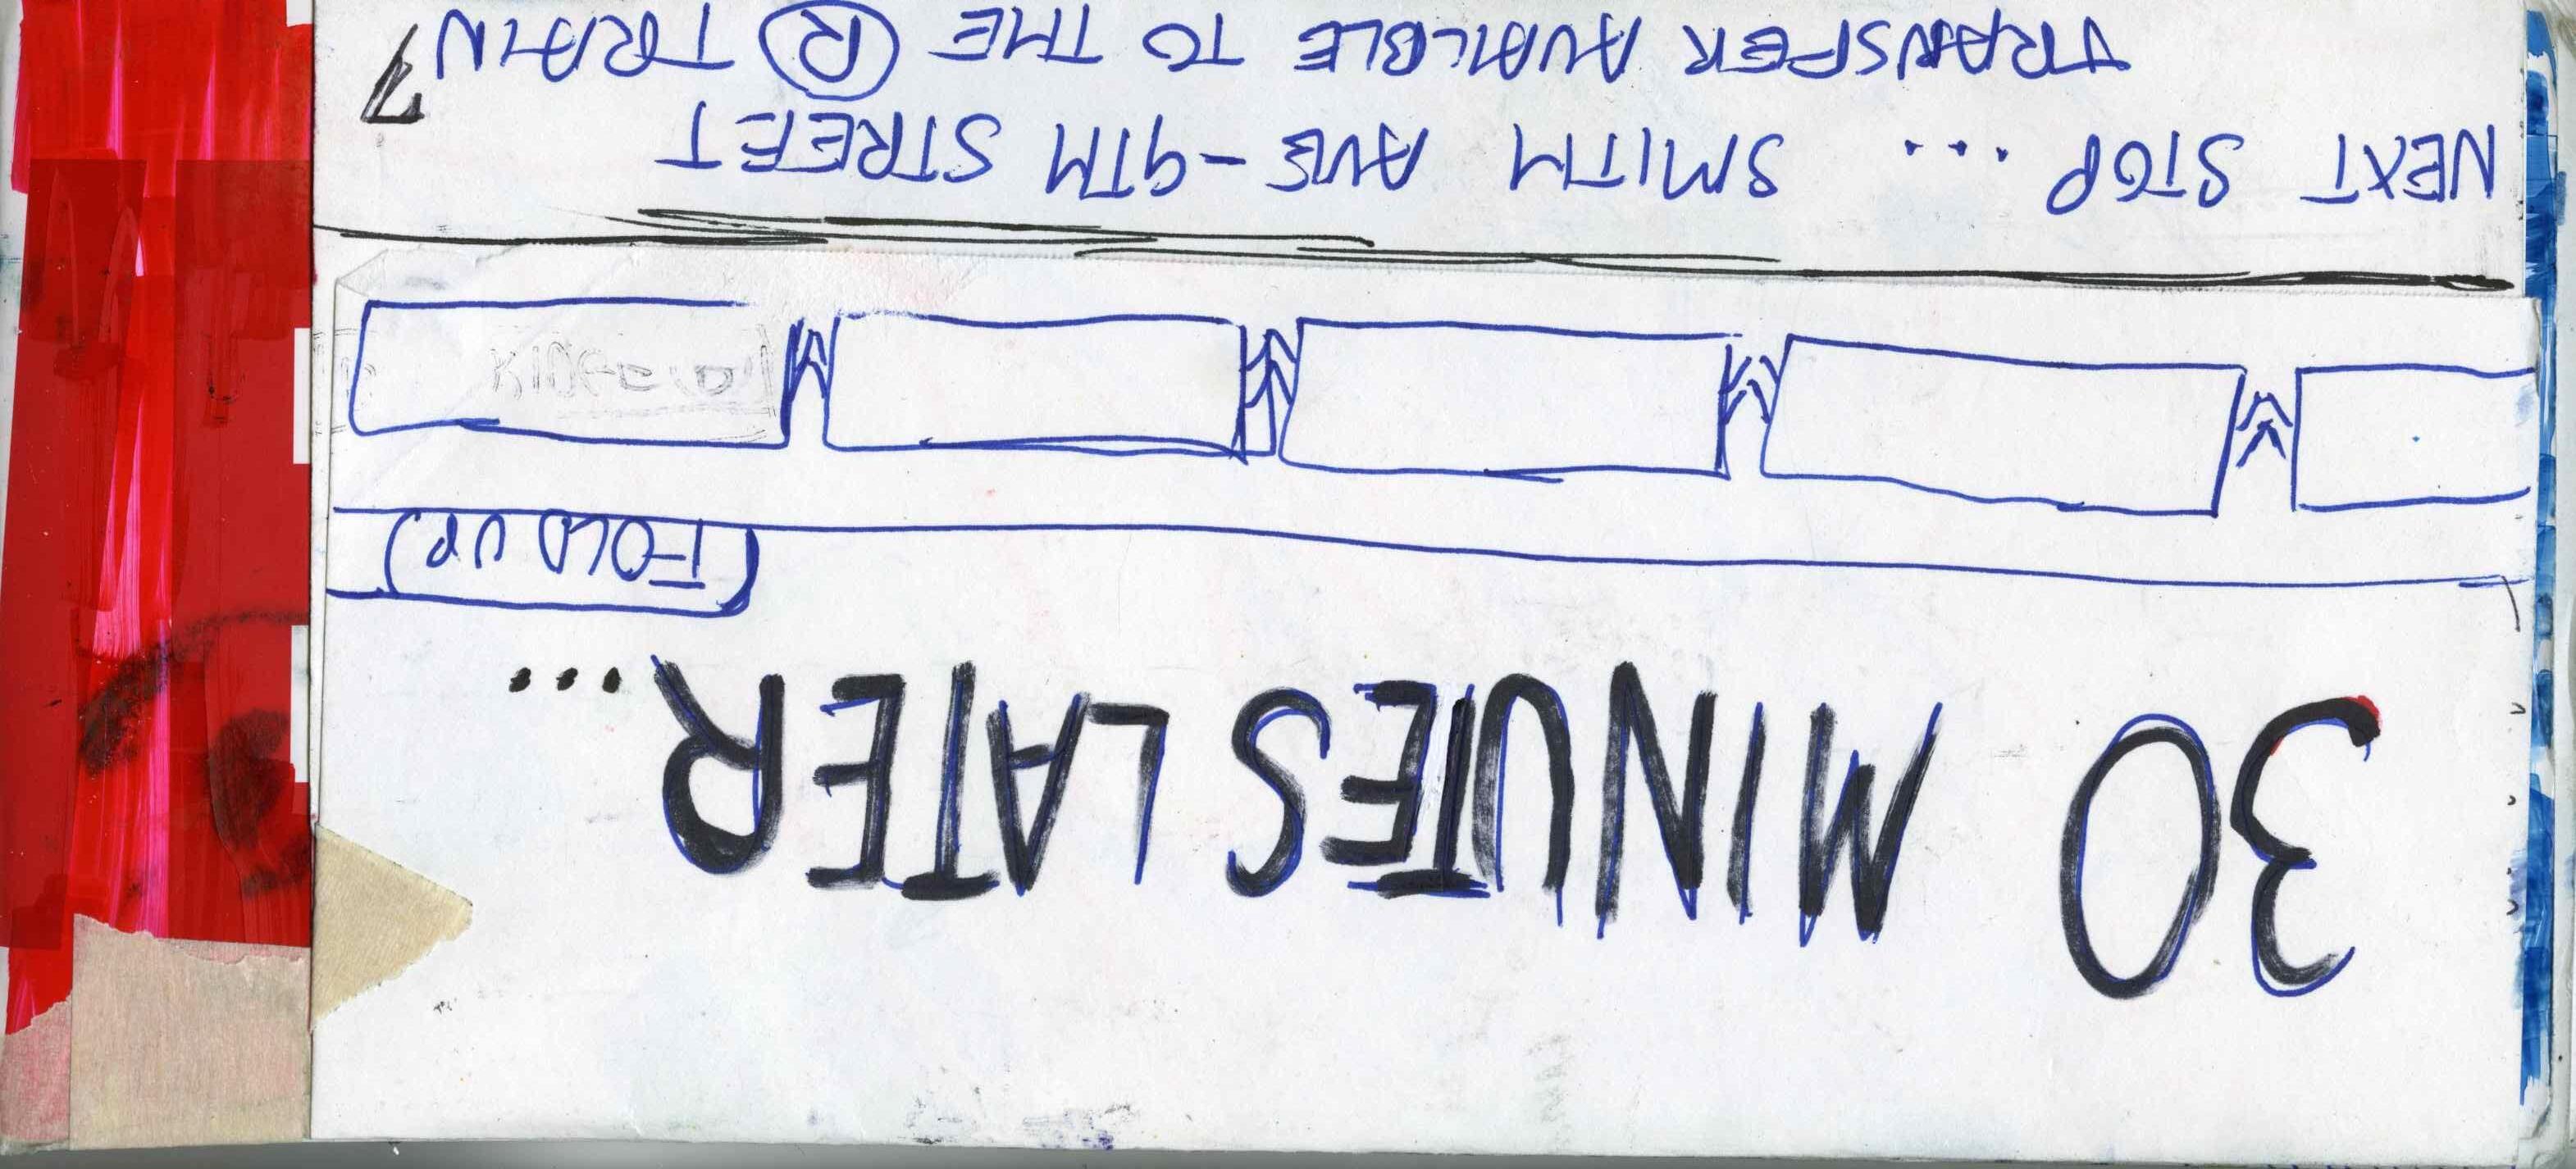 30 MINUTES LATER...
(FOLD UP)
NEXT STOP ... SMITH AVE-9TH STREET
TRANSFER AVAILBLE TO THE R TRAIN